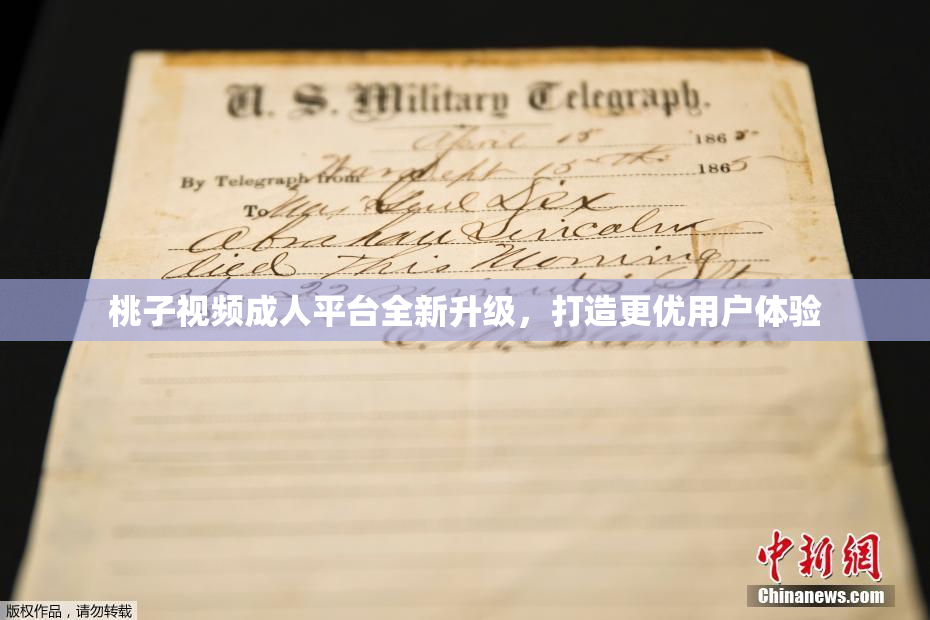 U. S. Military Telegraph.
April 15 1865
By Telegraph from War Dept 15th 1865
To Maj Genl Dix
Abraham Lincoln
died This Morning
at 22 minutes after
桃子视频成人平台全新升级，打造更优用户体验
E. M. Stanton
中新网
Chinanews.com
版权作品，请勿转载